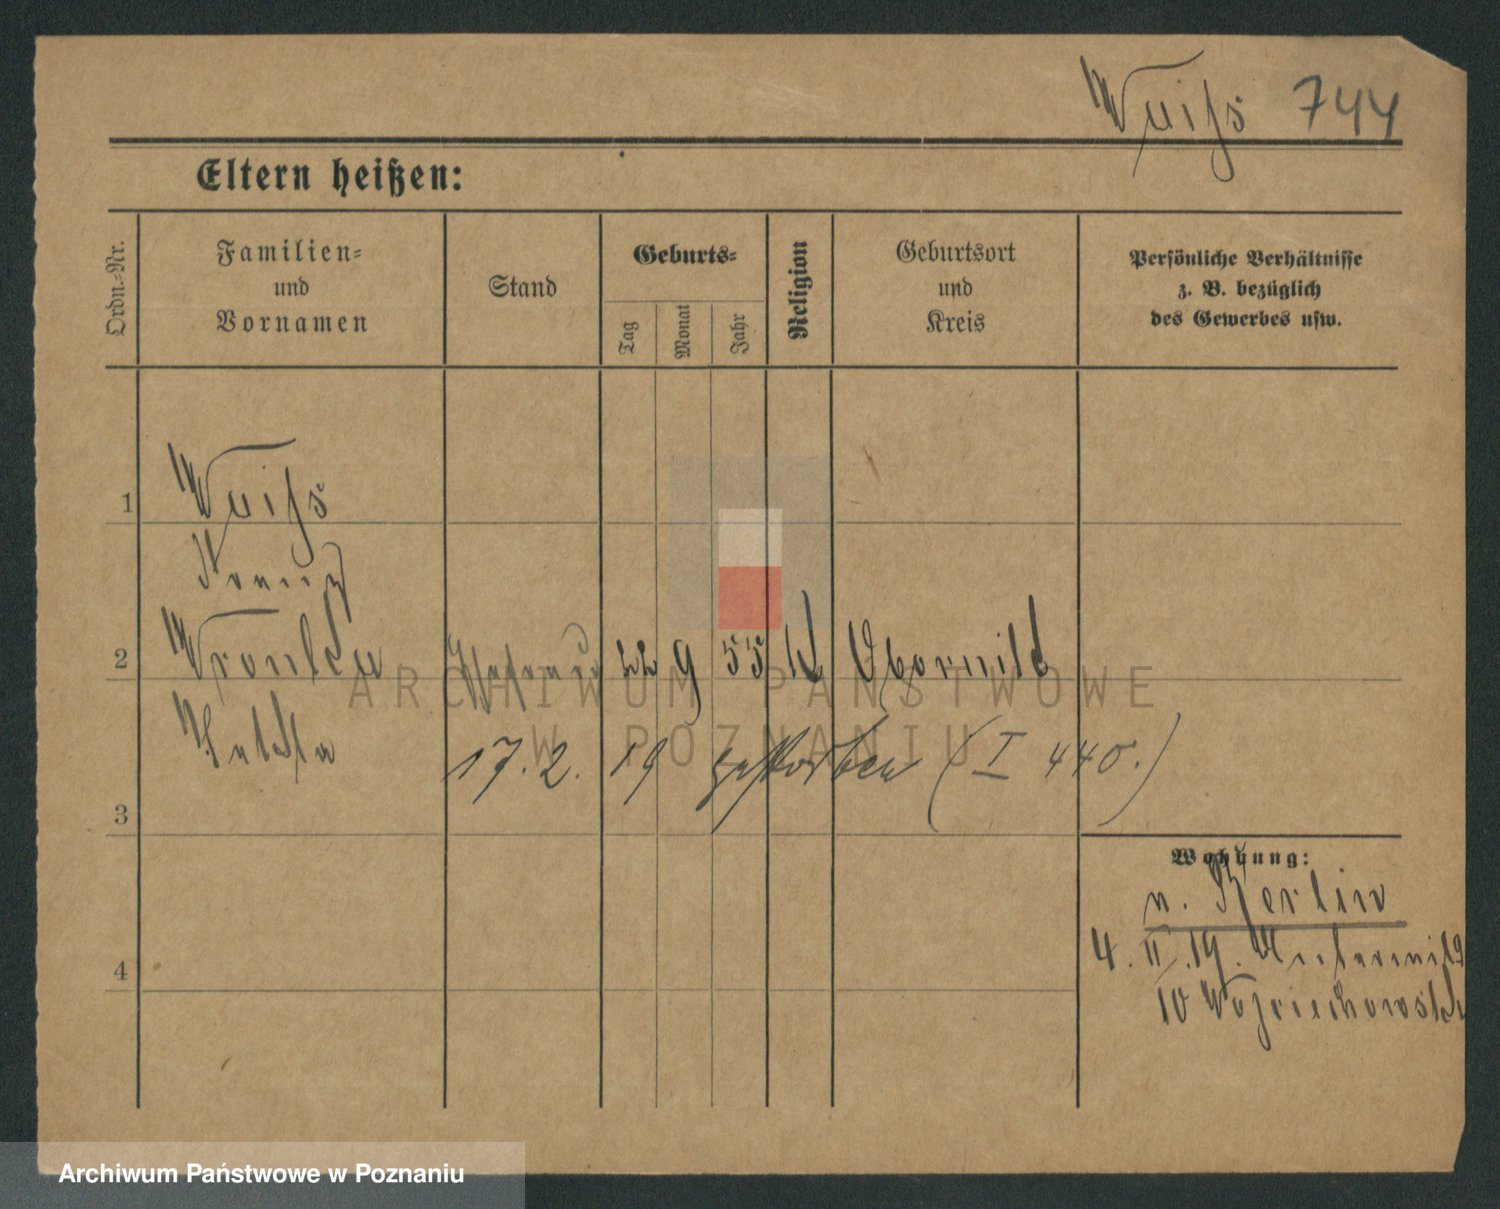 Weiß 744
Eltern heißen:
Ordn.-Nr.
Familien-
und
Vornamen
Stand
Geburts-
Tag
Monat
Jahr
Religion
Geburtsort
und
Kreis
Persönliche Verhältnisse
z. B. bezüglich
des Gewerbes usw.
1
Weiß
Franz
2
Wronka
22 9 55 K Obornik
ARCHIWUM PAŃSTWOWE
W POZNANIU
17. 2. 19 gestorben (I 440.)
3
Wohnung:
n. Berlin
4. II. 19.
10 Wojciechowski
4
Archiwum Państwowe w Poznaniu